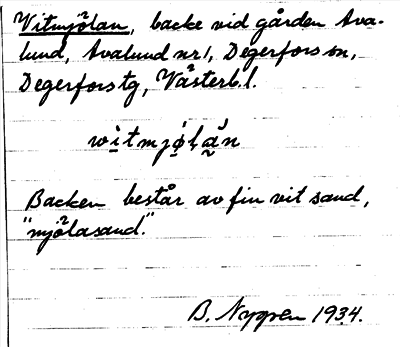 Vitmjölan, backe vid gården Ava-
lund, Avalund nr 1, Degerfors sn,
Degerfors tg, Västerb. l.
witmjölan
Backen består av fin vit sand,
"mjölasand."
B. Nygren 1934.